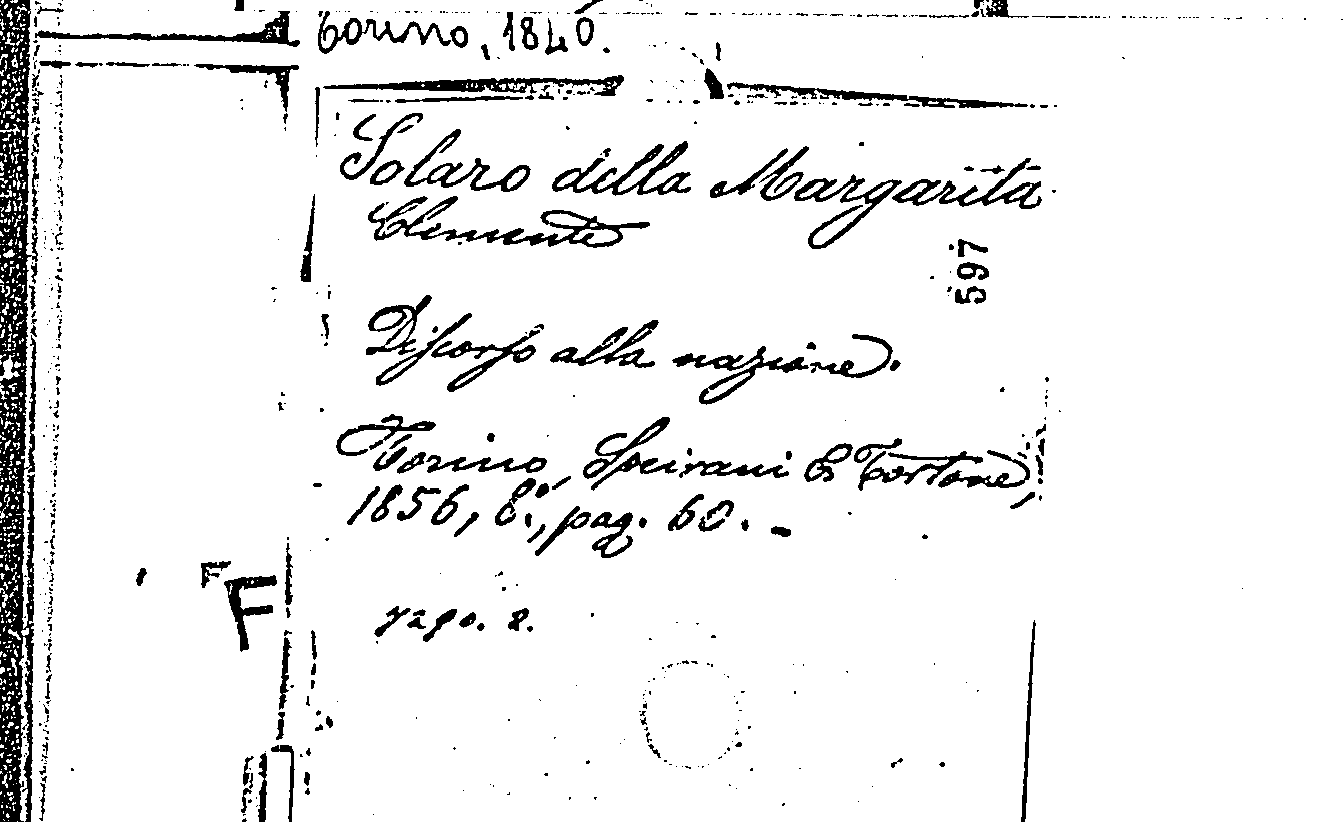 Torino, 1840.
Solaro della Margarita
Clemente
597
Discorso alla nazione.
Torino, Speirani & Tortone,
1856, 8.°, pag. 60. -
F